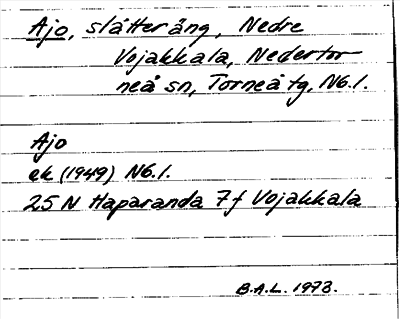 Ajo, slåtteräng, Nedre
Vojakkala, Nedertor-
neå sn, Torneå tg, Nb.l.
Ajo
ek (1949) Nb.l.
25 N Haparanda 7f Vojakkala
B.A.L. 1973.